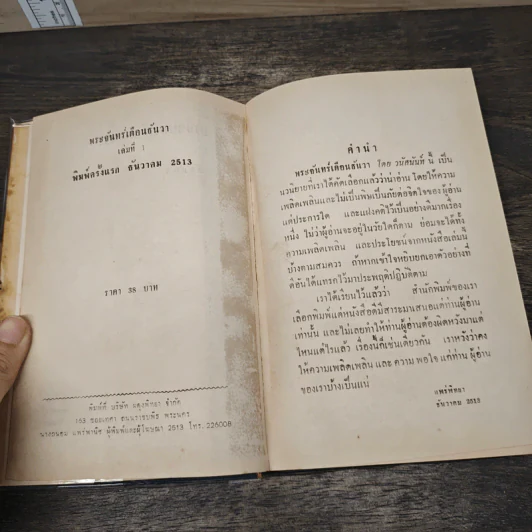 พระจันทร์เดือนธันวา
เล่มที่ 1
พิมพ์ครั้งแรก ธันวาคม 2513
ราคา 38 บาท
พิมพ์ที่ บริษัท ผดุงพิทยา จำกัด
ถนนราชบพิธ พระนคร
ผู้พิมพ์และผู้โฆษณา 2513 โทร. 226008
คำนำ
พระจันทร์เดือนธันวา โดย วนัสนันท์ นี้ เป็น
นวนิยายที่เราได้คัดเลือกแล้วว่าน่าอ่าน โดยให้ความ
เพลิดเพลินและไม่เป็นพิษเป็นภัยต่อจิตใจของผู้อ่าน
แต่ประการใด และแฝงคติไว้เป็นอย่างดีมากเรื่อง
หนึ่ง ไม่ว่าผู้อ่านจะอยู่ในวัยใดก็ตาม ย่อมจะได้ทั้ง
ความเพลิดเพลิน และประโยชน์จากหนังสือเล่มนี้
บ้างตามสมควร ถ้าหากเข้าใจหยิบยกเอาตัวอย่างที่
ดีอันได้แทรกไว้มาประพฤติปฏิบัติตาม
เราได้เรียนไว้แล้วว่า สำนักพิมพ์ของเรา
เลือกพิมพ์แต่หนังสือดีมีสาระมาเสนอแด่ท่านผู้อ่าน
เท่านั้น และไม่เคยทำให้ท่านผู้อ่านต้องผิดหวังมาแต่
ไหนแต่ไรแล้ว เรื่องนี้ก็เช่นเดียวกัน เราหวังว่าคง
ให้ความเพลิดเพลิน และ ความ พอใจ แด่ท่าน ผู้อ่าน
ของเราบ้างเป็นแน่
แพร่พิทยา
ธันวาคม 2513